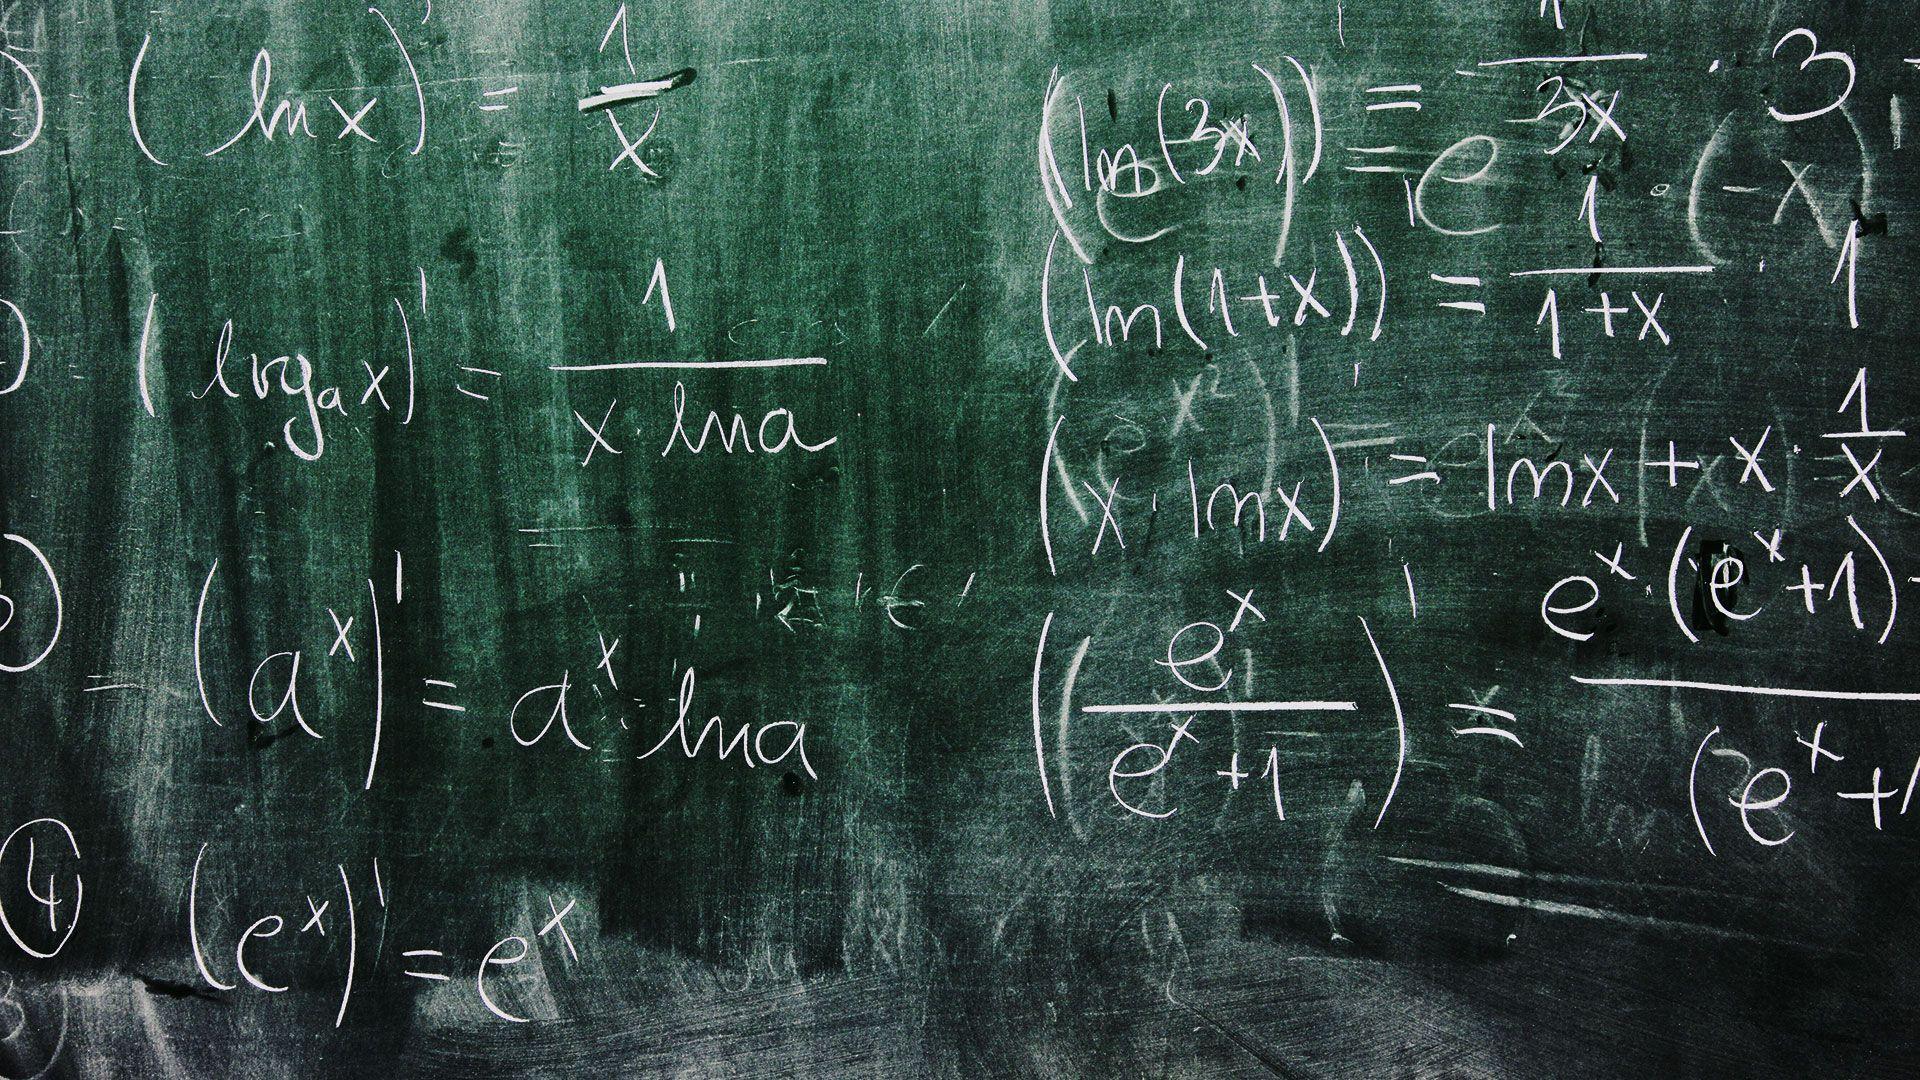 ) (ln x)' = 1/x
) (log_a x)' = 1/(x · ln a)
) (a^x)' = a^x · ln a
④ (e^x)' = e^x
(ln(3x))' = 1/(3x) · 3
(ln(1+x))' = 1/(1+x) · 1
(x · ln x)' = ln x + x · 1/x
(e^x/(e^x+1))' = e^x · (e^x+1) - / (e^x+1